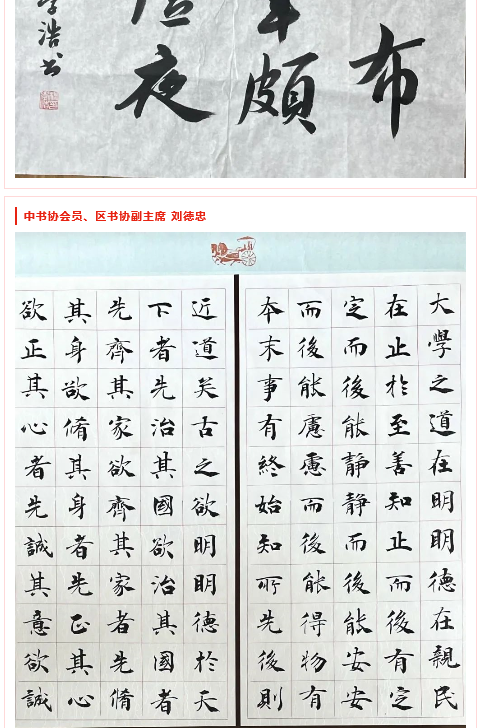 布
頗
夜
浩书
中书协会员、区书协副主席 刘德忠
大學之道在明明德在親民
在止於至善知止而後有定
定而後能靜靜而後能安安
而後能慮慮而後能得物有
本末事有終始知所先後則
近道矣古之欲明明德於天
下者先治其國欲治其國者
先齊其家欲齊其家者先脩
其身欲脩其身者先正其心
欲正其心者先誠其意欲誠